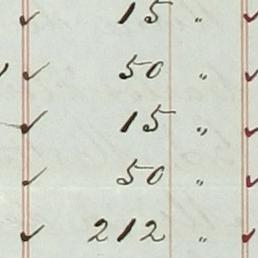 ✓ 15 "
✓ 50 "
✓ 15 "
✓ 50 "
✓ 212 "